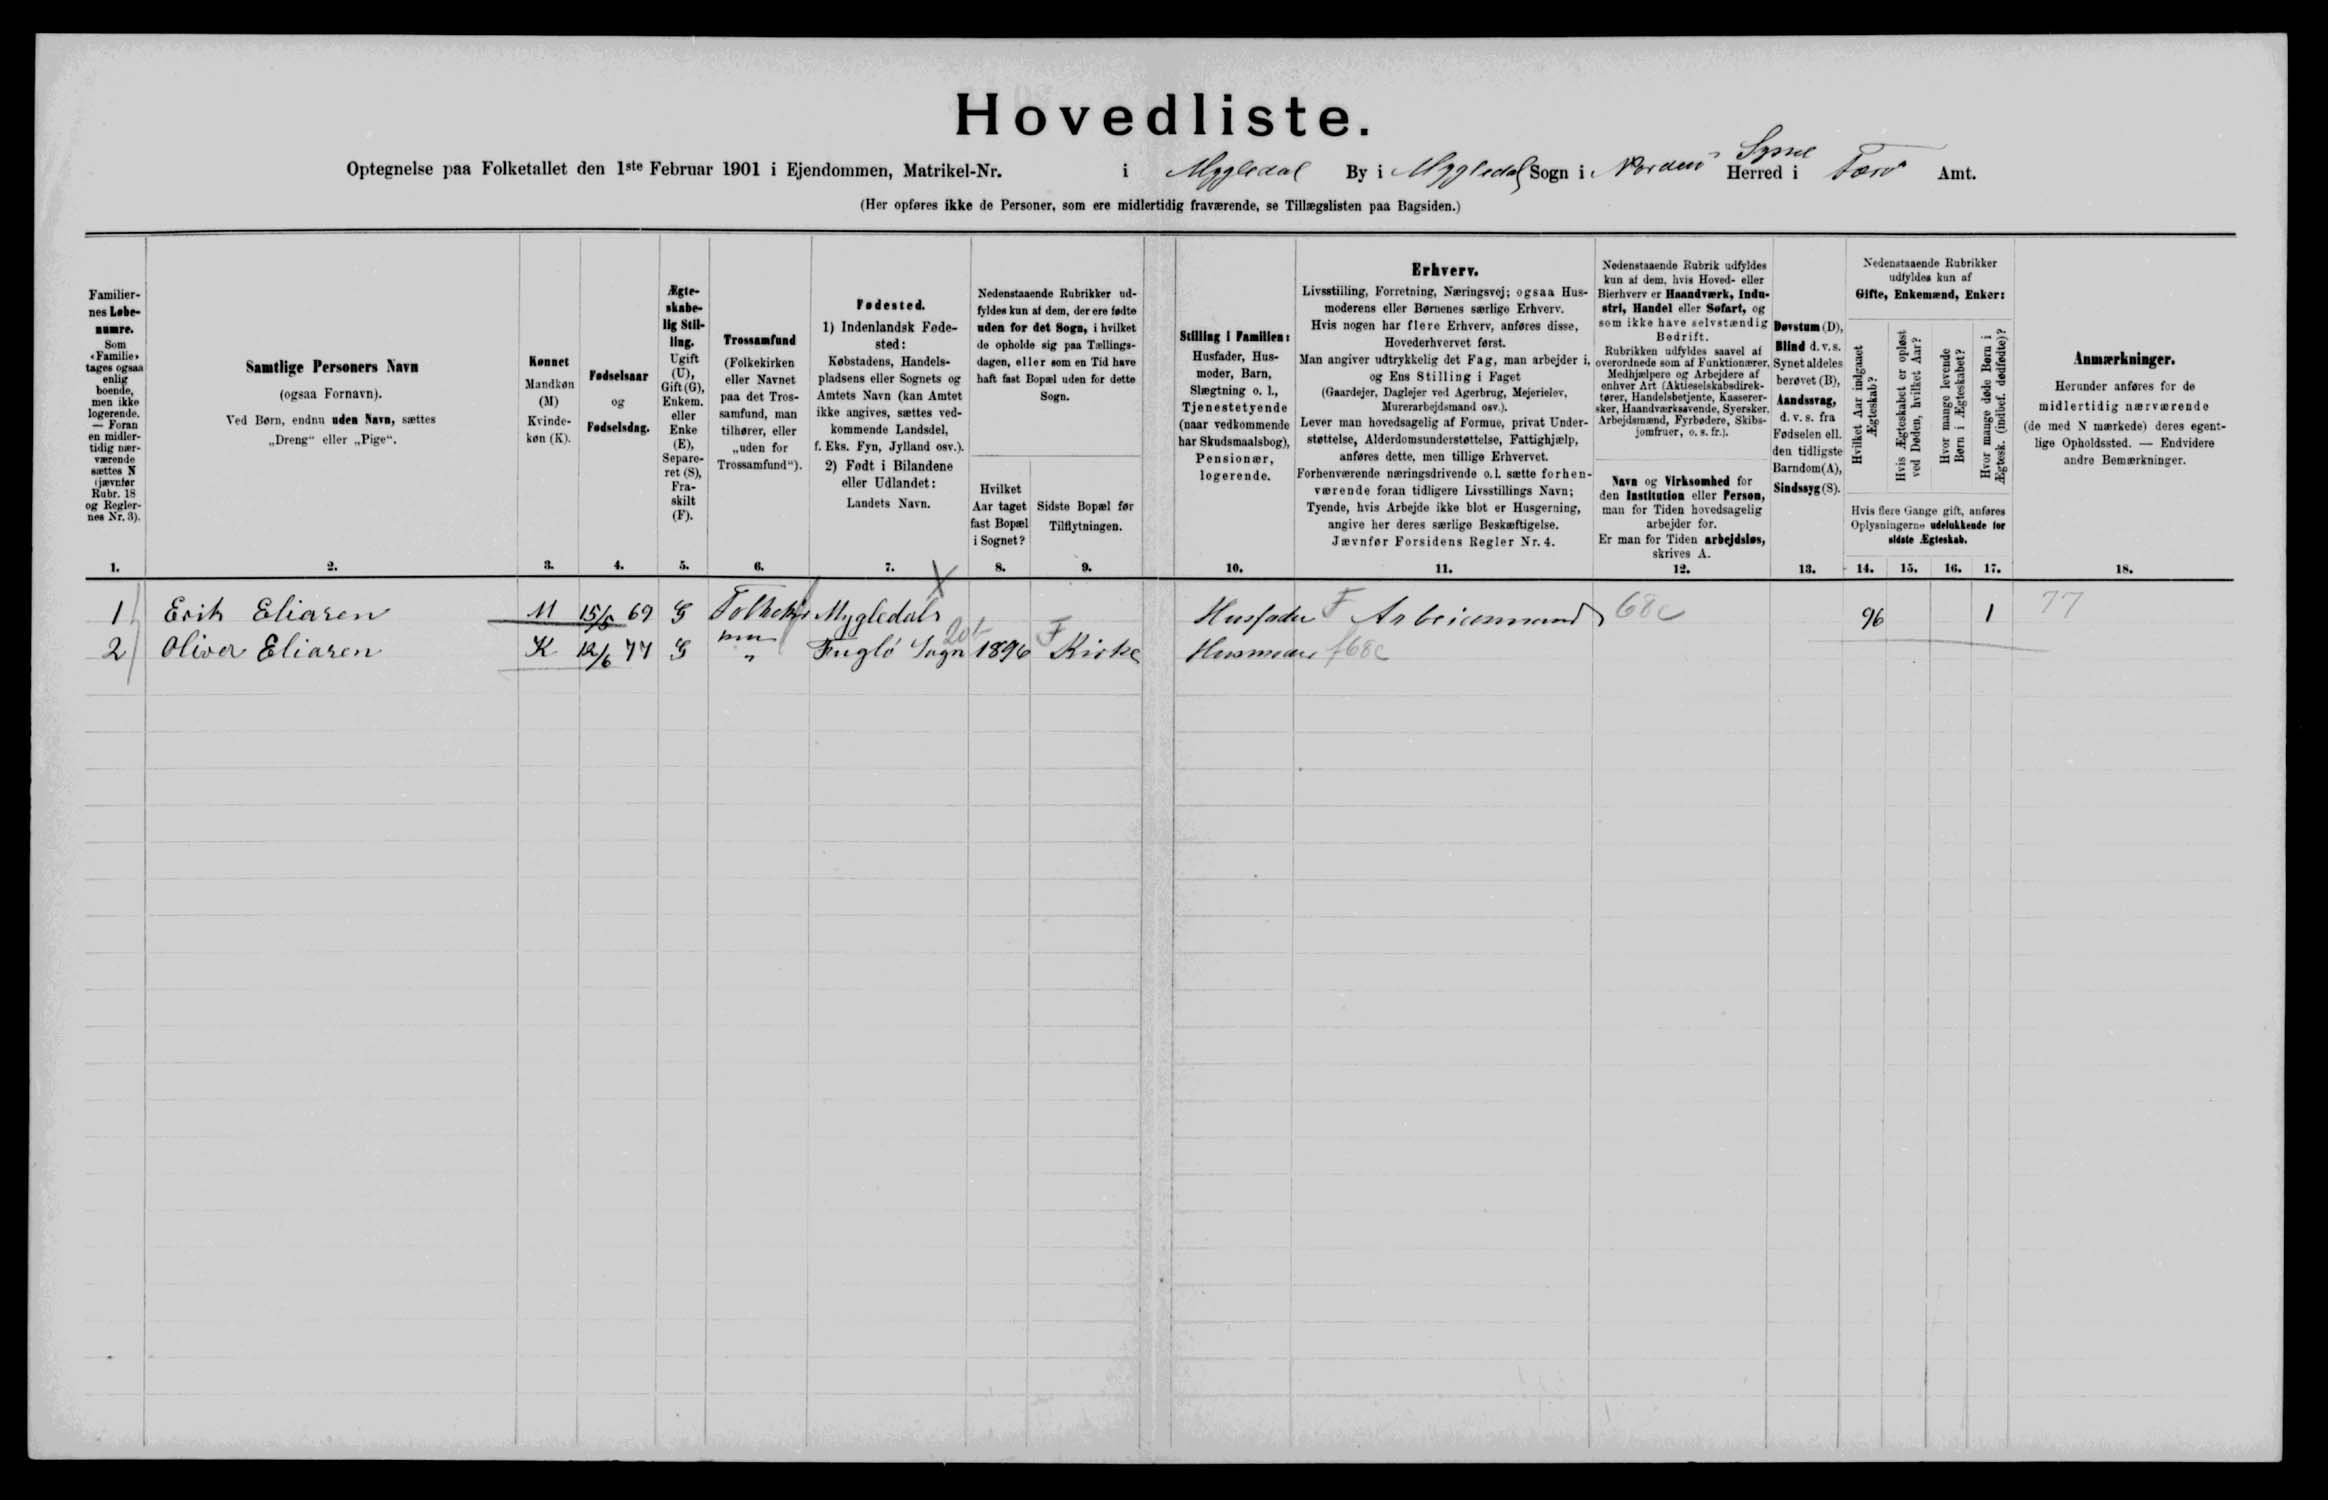 Hovedliste.
Optegnelse paa Folketallet den 1ste Februar 1901 i Ejendommen, Matrikel-Nr. i Mygledal By i Mygledal Sogn i Norderø Syssel Herred i Færø Amt.
(Her opføres ikke de Personer, som ere midlertidig fraværende, se Tillægslisten paa Bagsiden.)
Familier-
nes Løbe-
numre.
Som
«Familie»
tages ogsaa
enlig
boende,
men ikke
logerende.
— Foran
en midler-
tidig nær-
værende
sættes N
(jævnfør
Rubr. 18
og Regler-
nes Nr. 3).
1.
Samtlige Personers Navn
(ogsaa Fornavn).
Ved Børn, endnu uden Navn, sættes
„Dreng“ eller „Pige“.
2.
Kønnet
Mandkøn
(M)
Kvinde-
køn (K).
3.
Fødselsaar
og
Fødselsdag.
4.
Ægte-
skabe-
lig Stil-
ling.
Ugift
(U),
Gift (G),
Enkem.
eller
Enke
(E),
Separe-
ret (S),
Fra-
skilt
(F).
5.
Trossamfund
(Folkekirken
eller Navnet
paa det Tros-
samfund, man
tilhører, eller
„uden for
Trossamfund“).
6.
Fødested.
1) Indenlandsk Føde-
sted:
Købstadens, Handels-
pladsens eller Sognets og
Amtets Navn (kan Amtet
ikke angives, sættes ved-
kommende Landsdel,
f. Eks. Fyn, Jylland osv.).
2) Født i Bilandene
eller Udlandet:
Landets Navn.
7.
Nedenstaaende Rubrikker ud-
fyldes kun af dem, der ere fødte
uden for det Sogn, i hvilket
de opholde sig paa Tællings-
dagen, eller som en Tid have
haft fast Bopæl uden for dette
Sogn.
Hvilket
Aar taget
fast Bopæl
i Sognet?
8.
Sidste Bopæl før
Tilflytningen.
9.
Stilling i Familien:
Husfader, Hus-
moder, Barn,
Slægtning o. l.,
Tjenestetyende
(naar vedkommende
har Skudsmaalsbog),
Pensionær,
logerende.
10.
Erhverv.
Livsstiling, Forretning, Næringsvej; ogsaa Hus-
moderens eller Børnenes særlige Erhverv.
Hvis nogen har flere Erhverv, anføres disse,
Hovederhvervet først.
Man angiver udtrykkelig det Fag, man arbejder i,
og Ens Stilling i Faget
(Gaardejer, Daglejer ved Agerbrug, Mejerielev,
Murerarbejdsmand osv.).
Lever man hovedsagelig af Formue, privat Under-
støttelse, Alderdomsunderstøttelse, Fattighjælp,
anføres dette, men tillige Erhvervet.
Forhenværende næringsdrivende o. l. sætte forhen-
værende foran tidligere Livsstillings Navn;
Tyende, hvis Arbejde ikke blot er Husgerning,
angive her deres særlige Beskæftigelse.
Jævnfør Forsidens Regler Nr. 4.
11.
Nedenstaaende Rubrik udfyldes
kun af dem, hvis Hoved- eller
Bierhverv er Haandværk, Indu-
stri, Handel eller Søfart, og
som ikke have selvstændig
Bedrift.
Rubrikken udfyldes saavel af
overordnede som af Funktionærer,
Medhjælpere og Arbejdere af
enhver Art (Aktieselskabsdirek-
tører, Handelsbetjente, Kasserer-
sker, Haandværkssvende, Syersker,
Arbejdsmænd, Fyrbødere, Skibs-
jomfruer, o. s. fr.).
Navn og Virksomhed for
den Institution eller Person,
man for Tiden hovedsagelig
arbejder for.
Er man for Tiden arbejdsløs,
skrives A.
12.
Døvstum (D),
Blind d. v. s.
Synet aldeles
berøvet (B),
Aandssvag,
d. v. s. fra
Fødselen ell.
den tidligste
Barndom (A),
Sindssyg (S).
13.
Nedenstaaende Rubrikker
udfyldes kun af
Gifte, Enkemænd, Enker:
Hvilket Aar indgaaet
Ægteskab?
Hvis Ægteskabet er opløst
ved Døden, hvilket Aar?
Hvor mange levende
Børn i Ægteskabet?
Hvor mange døde Børn i
Ægtesk. (indbef. dødfødte)?
Hvis flere Gange gift, anføres
Oplysningerne udelukkende for
sidste Ægteskab.
14. 15. 16. 17.
Anmærkninger.
Herunder anføres for de
midlertidig nærværende
(de med N mærkede) deres egent-
lige Opholdssted. — Endvidere
andre Bemærkninger.
18.
1 Erik Eliasen M 15/5 69 G Folkekir Mygledals Husfader F Arbeidsmand 68c 96 1 77
2 Oliva Eliasen K 12/6 77 G " Fuglø Sogn 1896 F Kirke Husmoder f68c